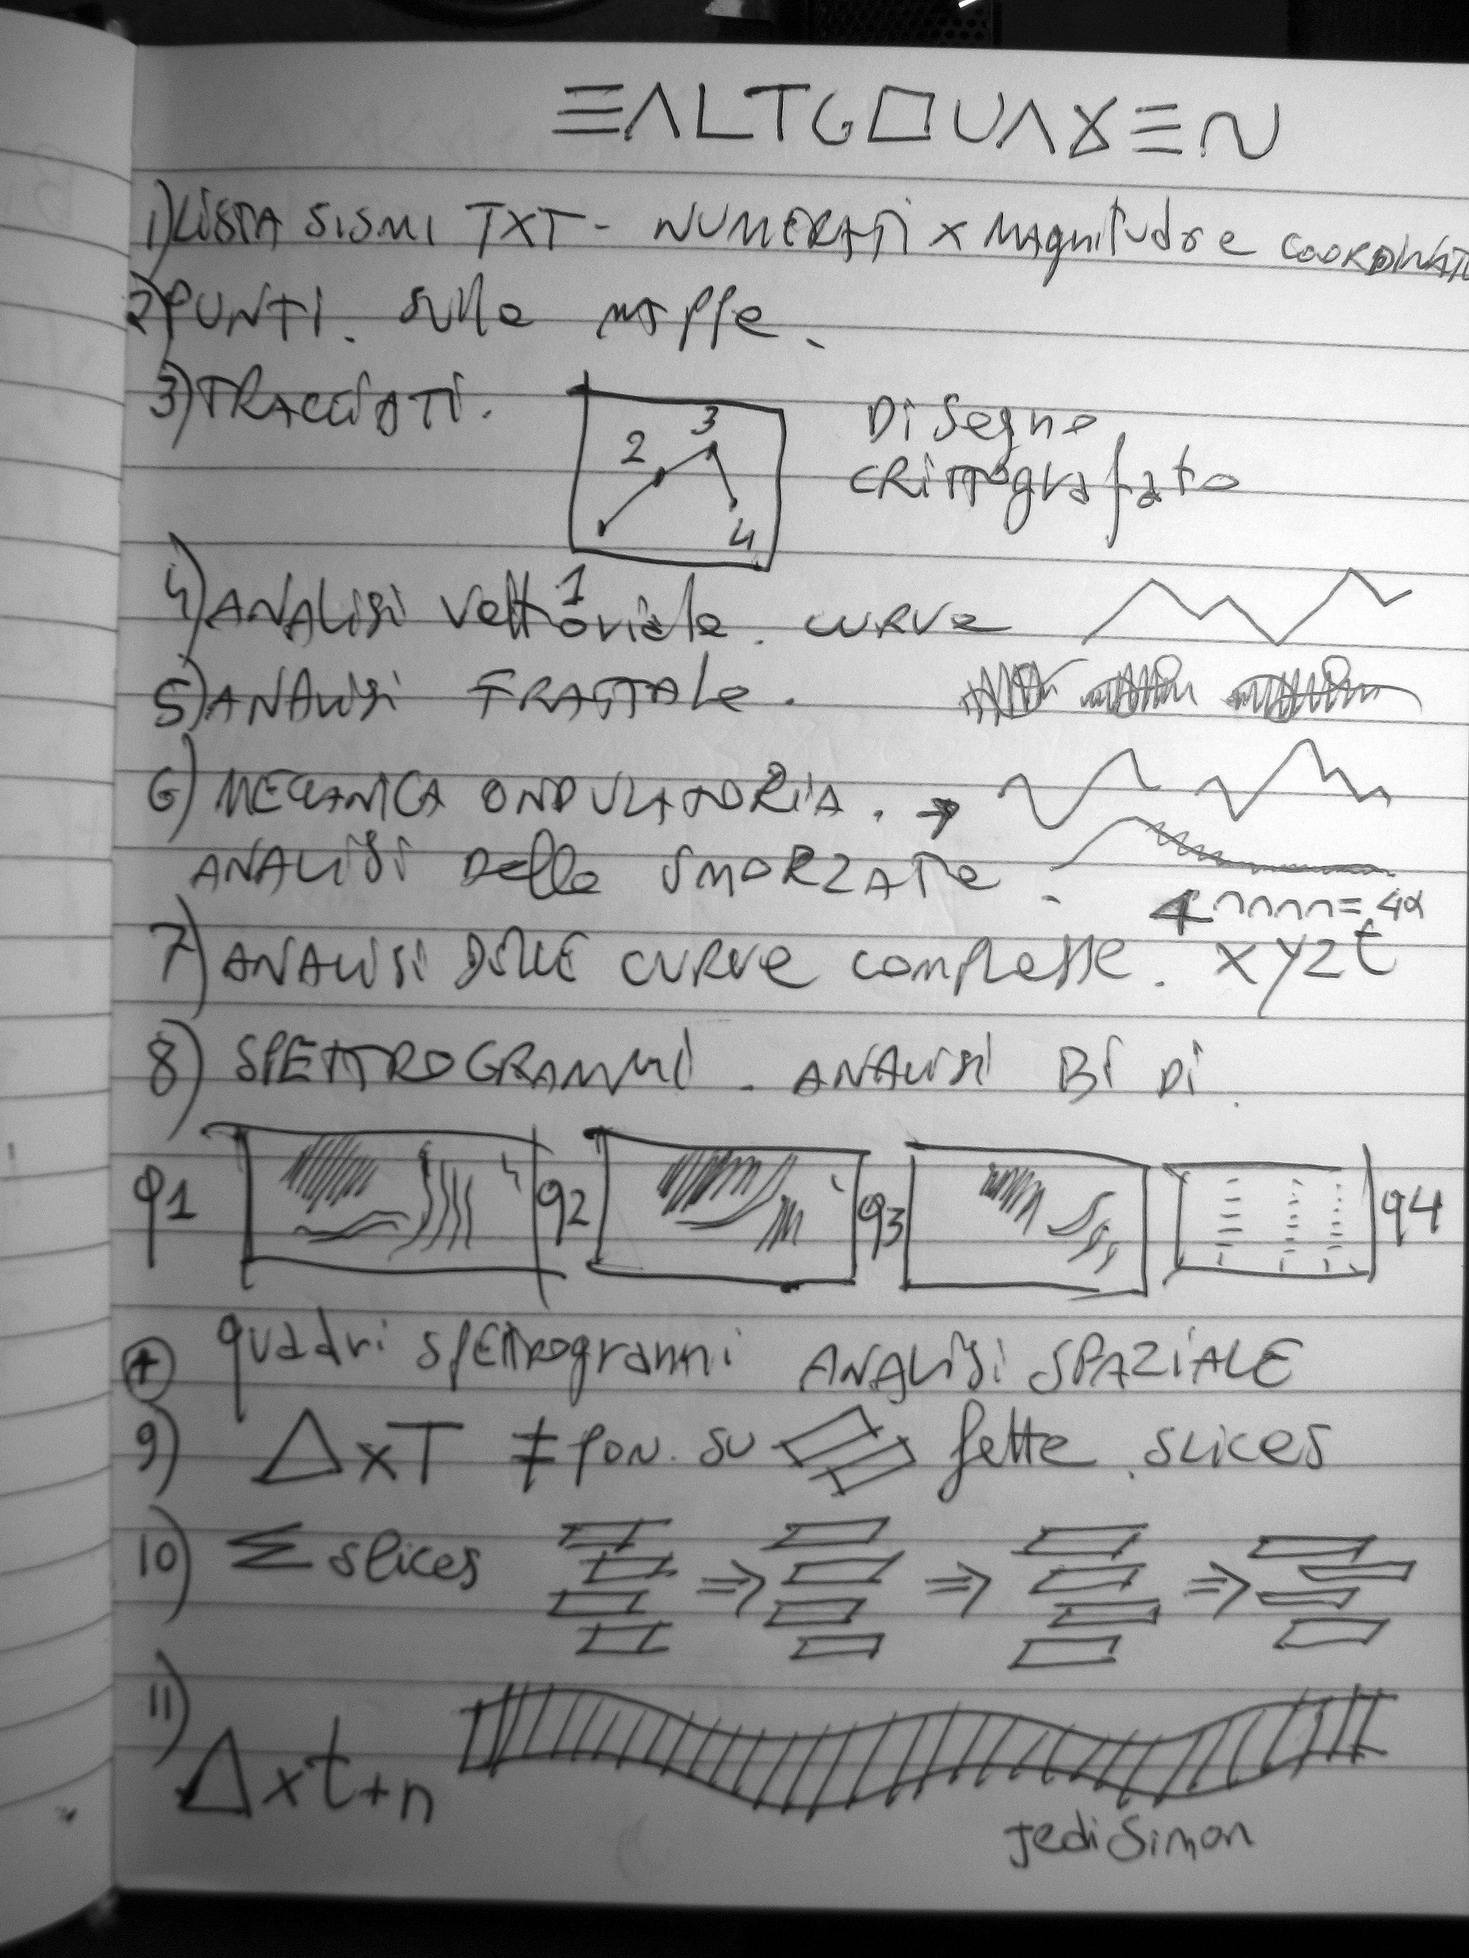 ΞΛLTG□UΛXΞN
1) LISTA SISMI TXT - NUMERATI x MAgnitudo e COORDINATE
2) PUNTI. sulle mappe.
3) TRACCIATI.
2 3 4
Disegno
CRITTOgrafato
1
4) ANALISI vettoriale. CURVE
5) ANALISI FRATTALe.
6) MECCANICA ONDULATORIA. →
ANALISI Delle SMORZATE.
= 4α
7) ANALISI DELLE CURVE COMPLESSE. xyzt
8) SPETTROGRAMMI. ANALISI Bi Di.
q1 q2 q3 q4
+ quadri spettrogrammi ANALISI SPAZIALE
9) Δ x T ≠ PON. SU fette. slices
10) Σ slices ⇒ ⇒ ⇒
11) Δ x t+n
JediSimon